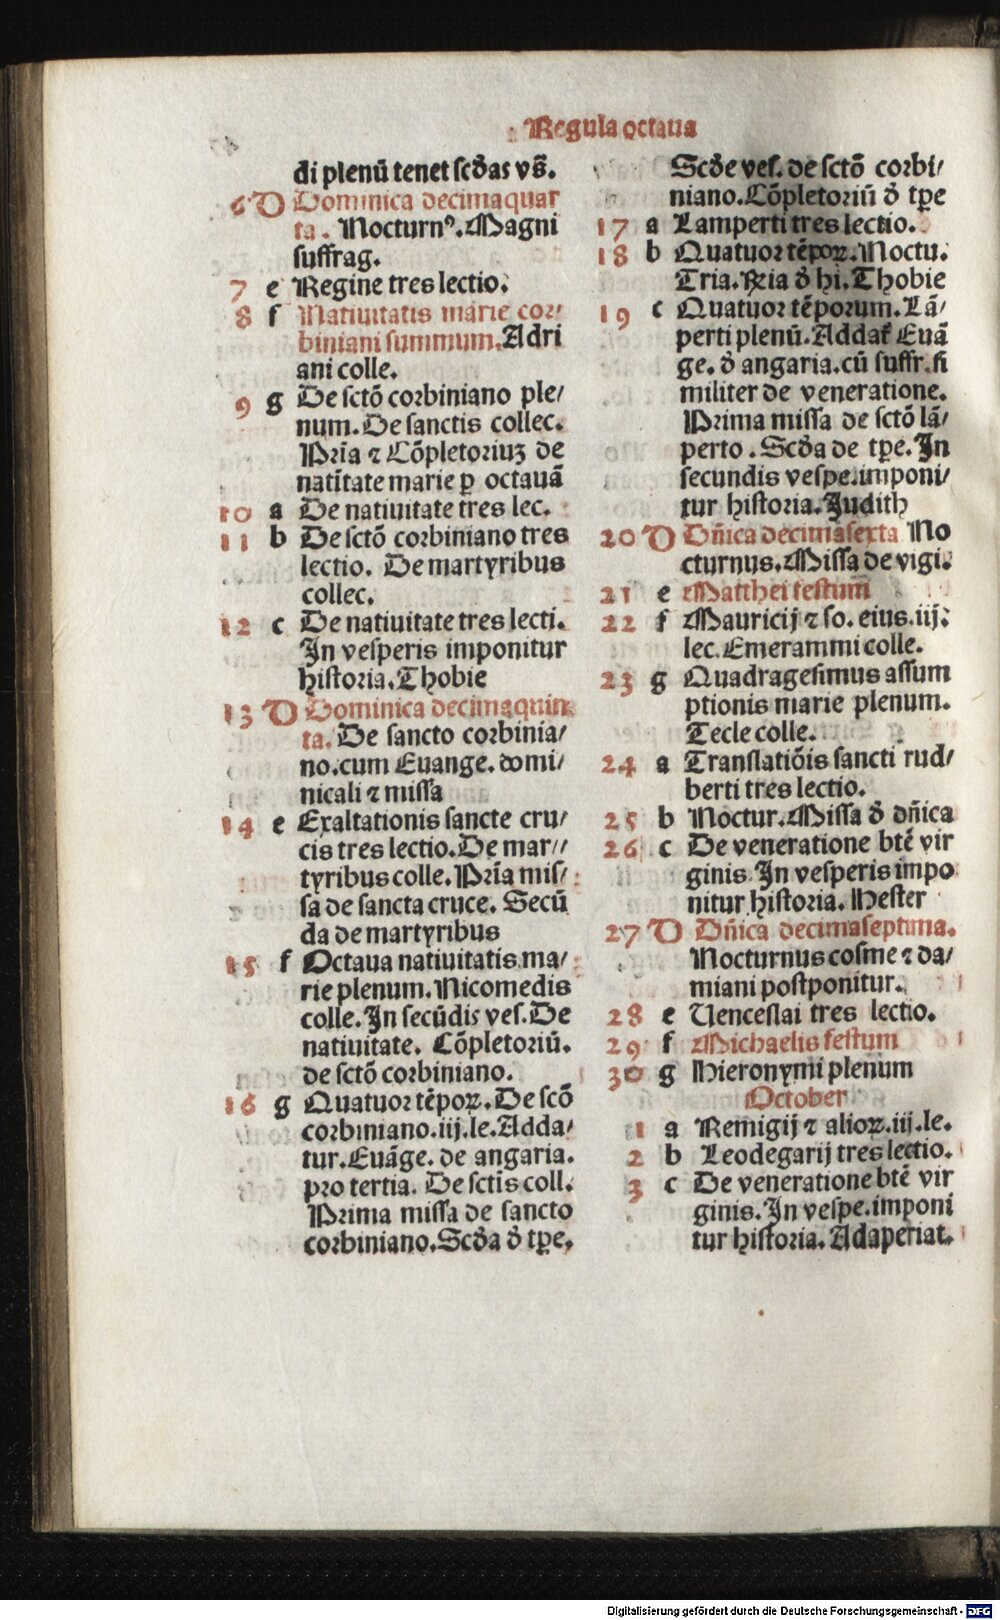 Regula octaua
di plenū tenet scďas vs̄.
6 D Dominica decimaquar
ta. Nocturnꝰ. Magni
suffrag.
7 e Regine tres lectio.
8 f Natiuitatis marie cor/
biniani summum. Adri
ani colle.
9 g De sctō corbiniano ple/
num. De sanctis collec.
Prīa ⁊ Cōpletoriuꝫ de
natītate marie ꝑ octauā
10 a De natiuitate tres lec.
11 b De sctō corbiniano tres
lectio. De martyribus
collec.
12 c De natiuitate tres lecti.
In vesperis imponitur
historia. Thobie
13 D Dominica decimaquin
ta. De sancto corbinia/
no. cum Euange. domi/
nicali ⁊ missa
14 e Exaltationis sancte cru/
cis tres lectio. De mar//
tyribus colle. Prīa mis/
sa de sancta cruce. Secū
da de martyribus
15 f Octaua natiuitatis ma/
rie plenum. Nicomedis
colle. In secūdis ves. De
natiuitate. Cōpletoriū.
de sctō corbiniano.
16 g Quatuor tēpoꝝ. De scō
corbiniano. iij. le. Adda/
tur. Euāge. de angaria.
pro tertia. De sctīs coll.
Prima missa de sancto
corbiniano. Scďa ď tꝑe.
Scďe ves. de sctō corbi/
niano. Cōpletoriū ď tꝑe
17 a Lamperti tres lectio.
18 b Quatuor tēpoꝝ. Noctu.
Tria. Rīa ď hi. Thobie
19 c Quatuor tēporum. Lā/
perti plenū. Addat̄ Euā
ge. ď angaria. cū suffr. si
militer de veneratione.
Prima missa de sctō lā/
perto. Scďa de tꝑe. In
secundis vespe. imponi/
tur historia. Judith
20 D Dn̄ica decimasexta No
cturnus. Missa de vigi.
21 e Matthei festum
22 f Mauricij ⁊ so. eius. iij.
lec. Emerammi colle.
23 g Quadragesimus assum
ptionis marie plenum.
Tecle colle.
24 a Translatiōis sancti rud/
berti tres lectio.
25 b Noctur. Missa ď dn̄ica
26 c De veneratione btē vir
ginis. In vesperis impo
nitur historia. Hester
27 D Dn̄ica decimaseptima.
Nocturnus cosme ⁊ da/
miani postponitur.
28 e Uenceslai tres lectio.
29 f Michaelis festum
30 g Hieronymi plenum
October
1 a Remigij ⁊ alioꝝ. iij. le.
2 b Leodegarij tres lectio.
3 c De veneratione btē vir
ginis. In vespe. imponi
tur historia. Adaperiat.
Digitalisierung gefördert durch die Deutsche Forschungsgemeinschaft - DFG